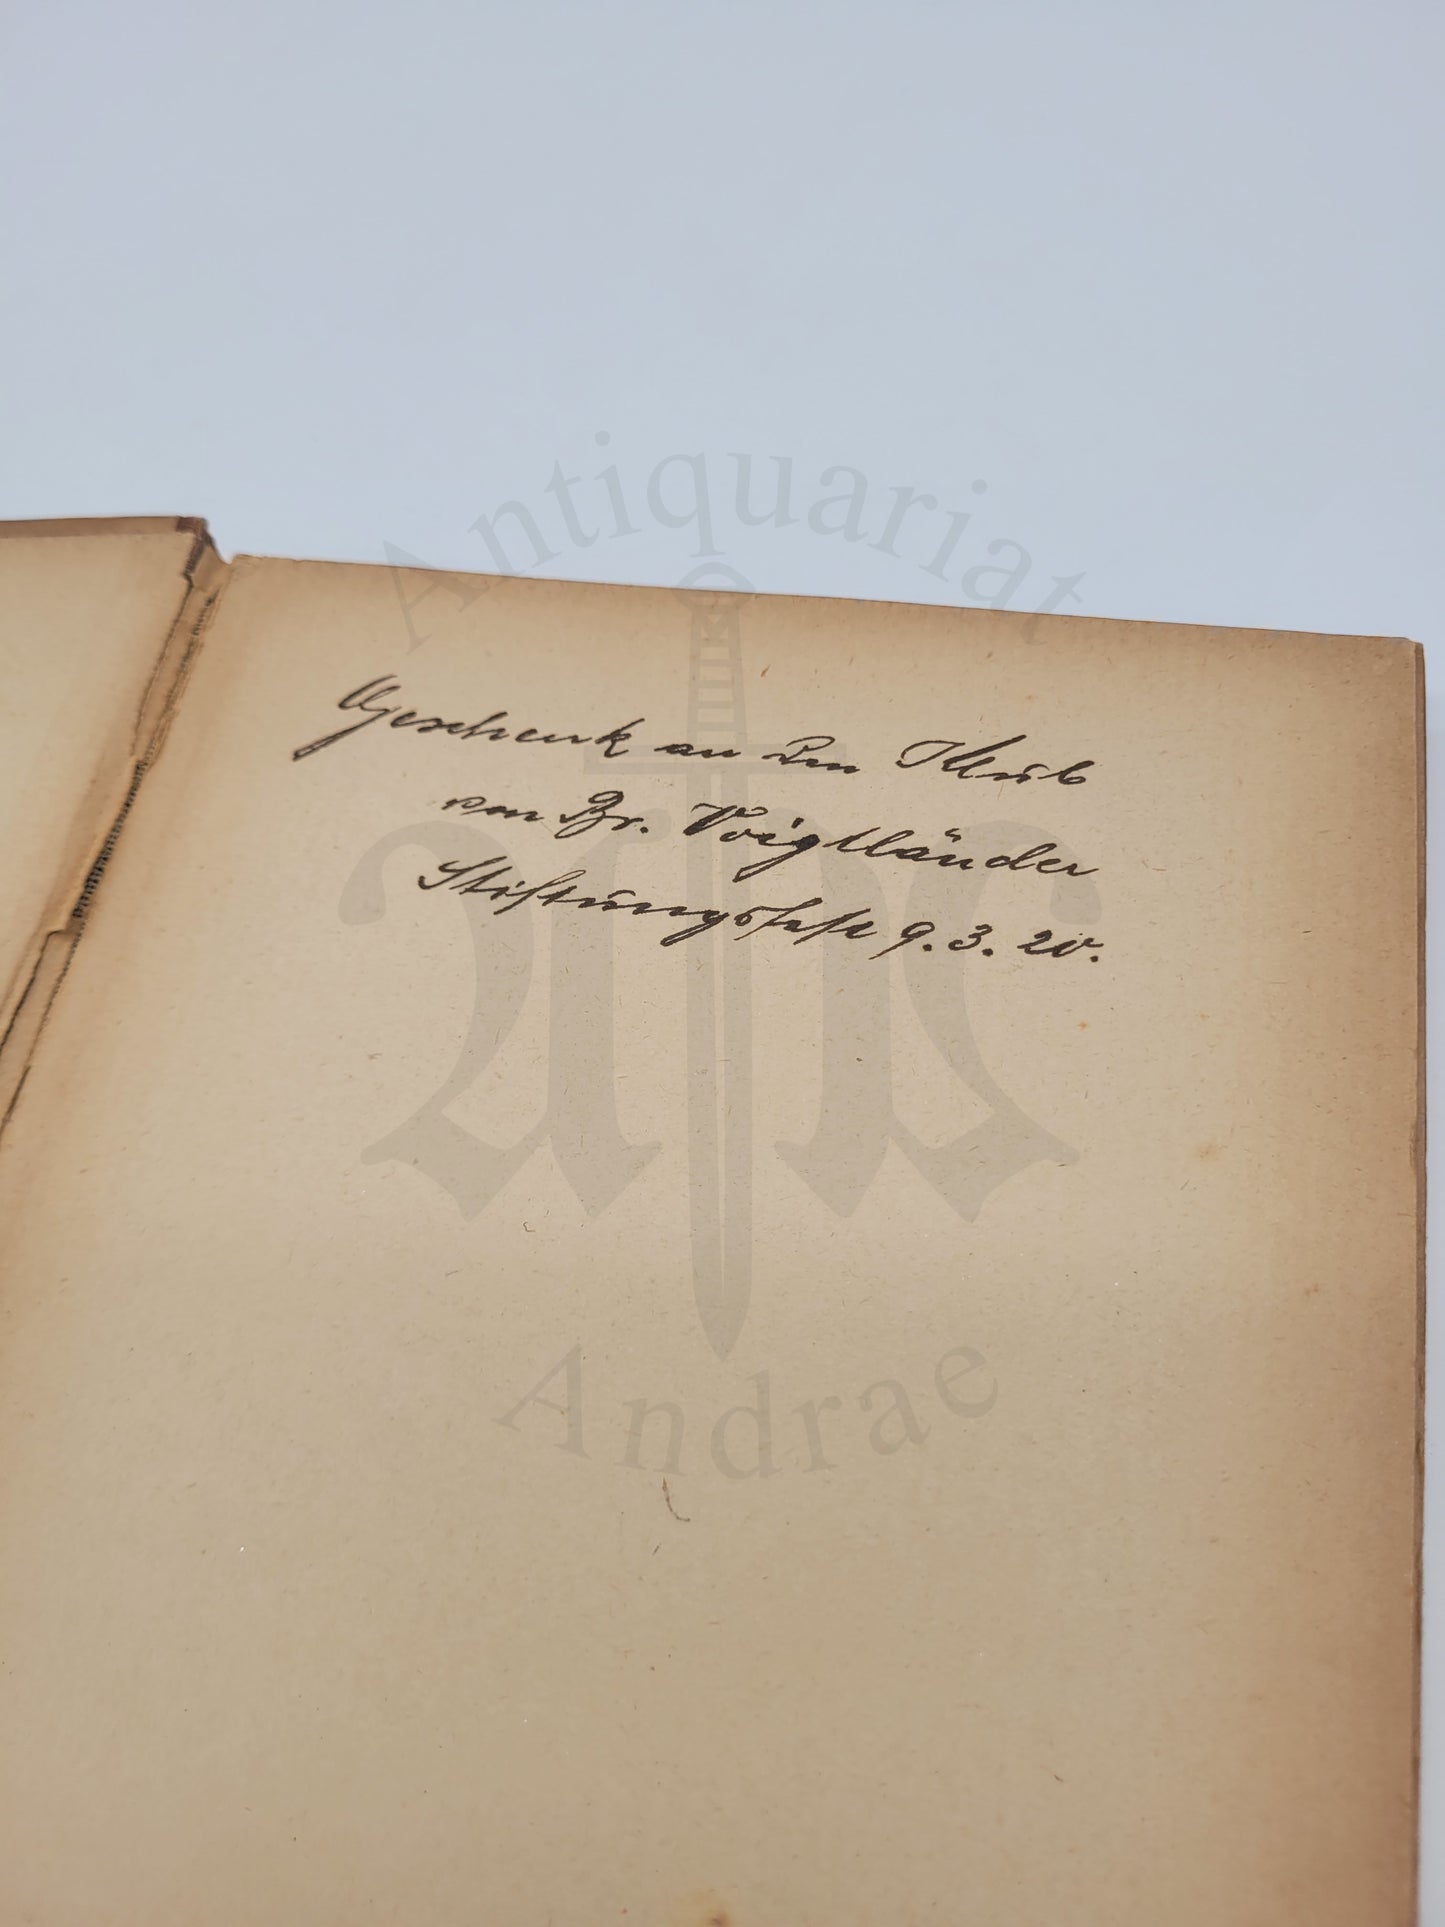 Antiquariat
Geschenk an den Klub
von Br. Voigtländer
Stiftungsfest 9. 3. 20.
Andrae